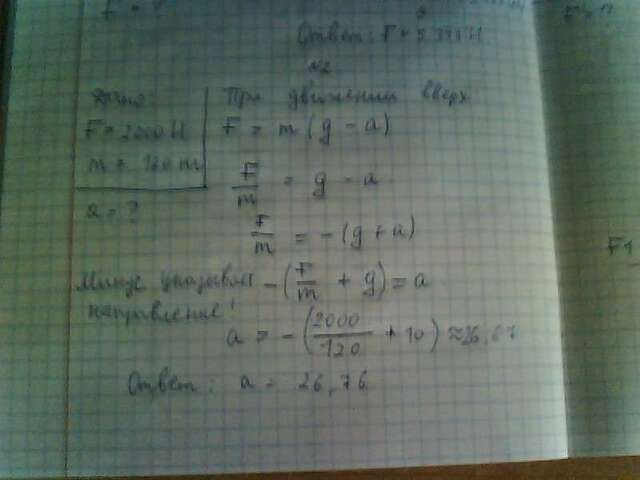 Ответ: F = 5
№2.
Дано:
F = 2000 Н
m = 120
a = ?
При движении вверх
F = m (g - a)
F/m = g - a
F/m = - (g + a)
Минус указывает направление!
- (F/m + g) = a
a = - (2000/120 + 10) ≈ 26,67
Ответ: a = 26,76